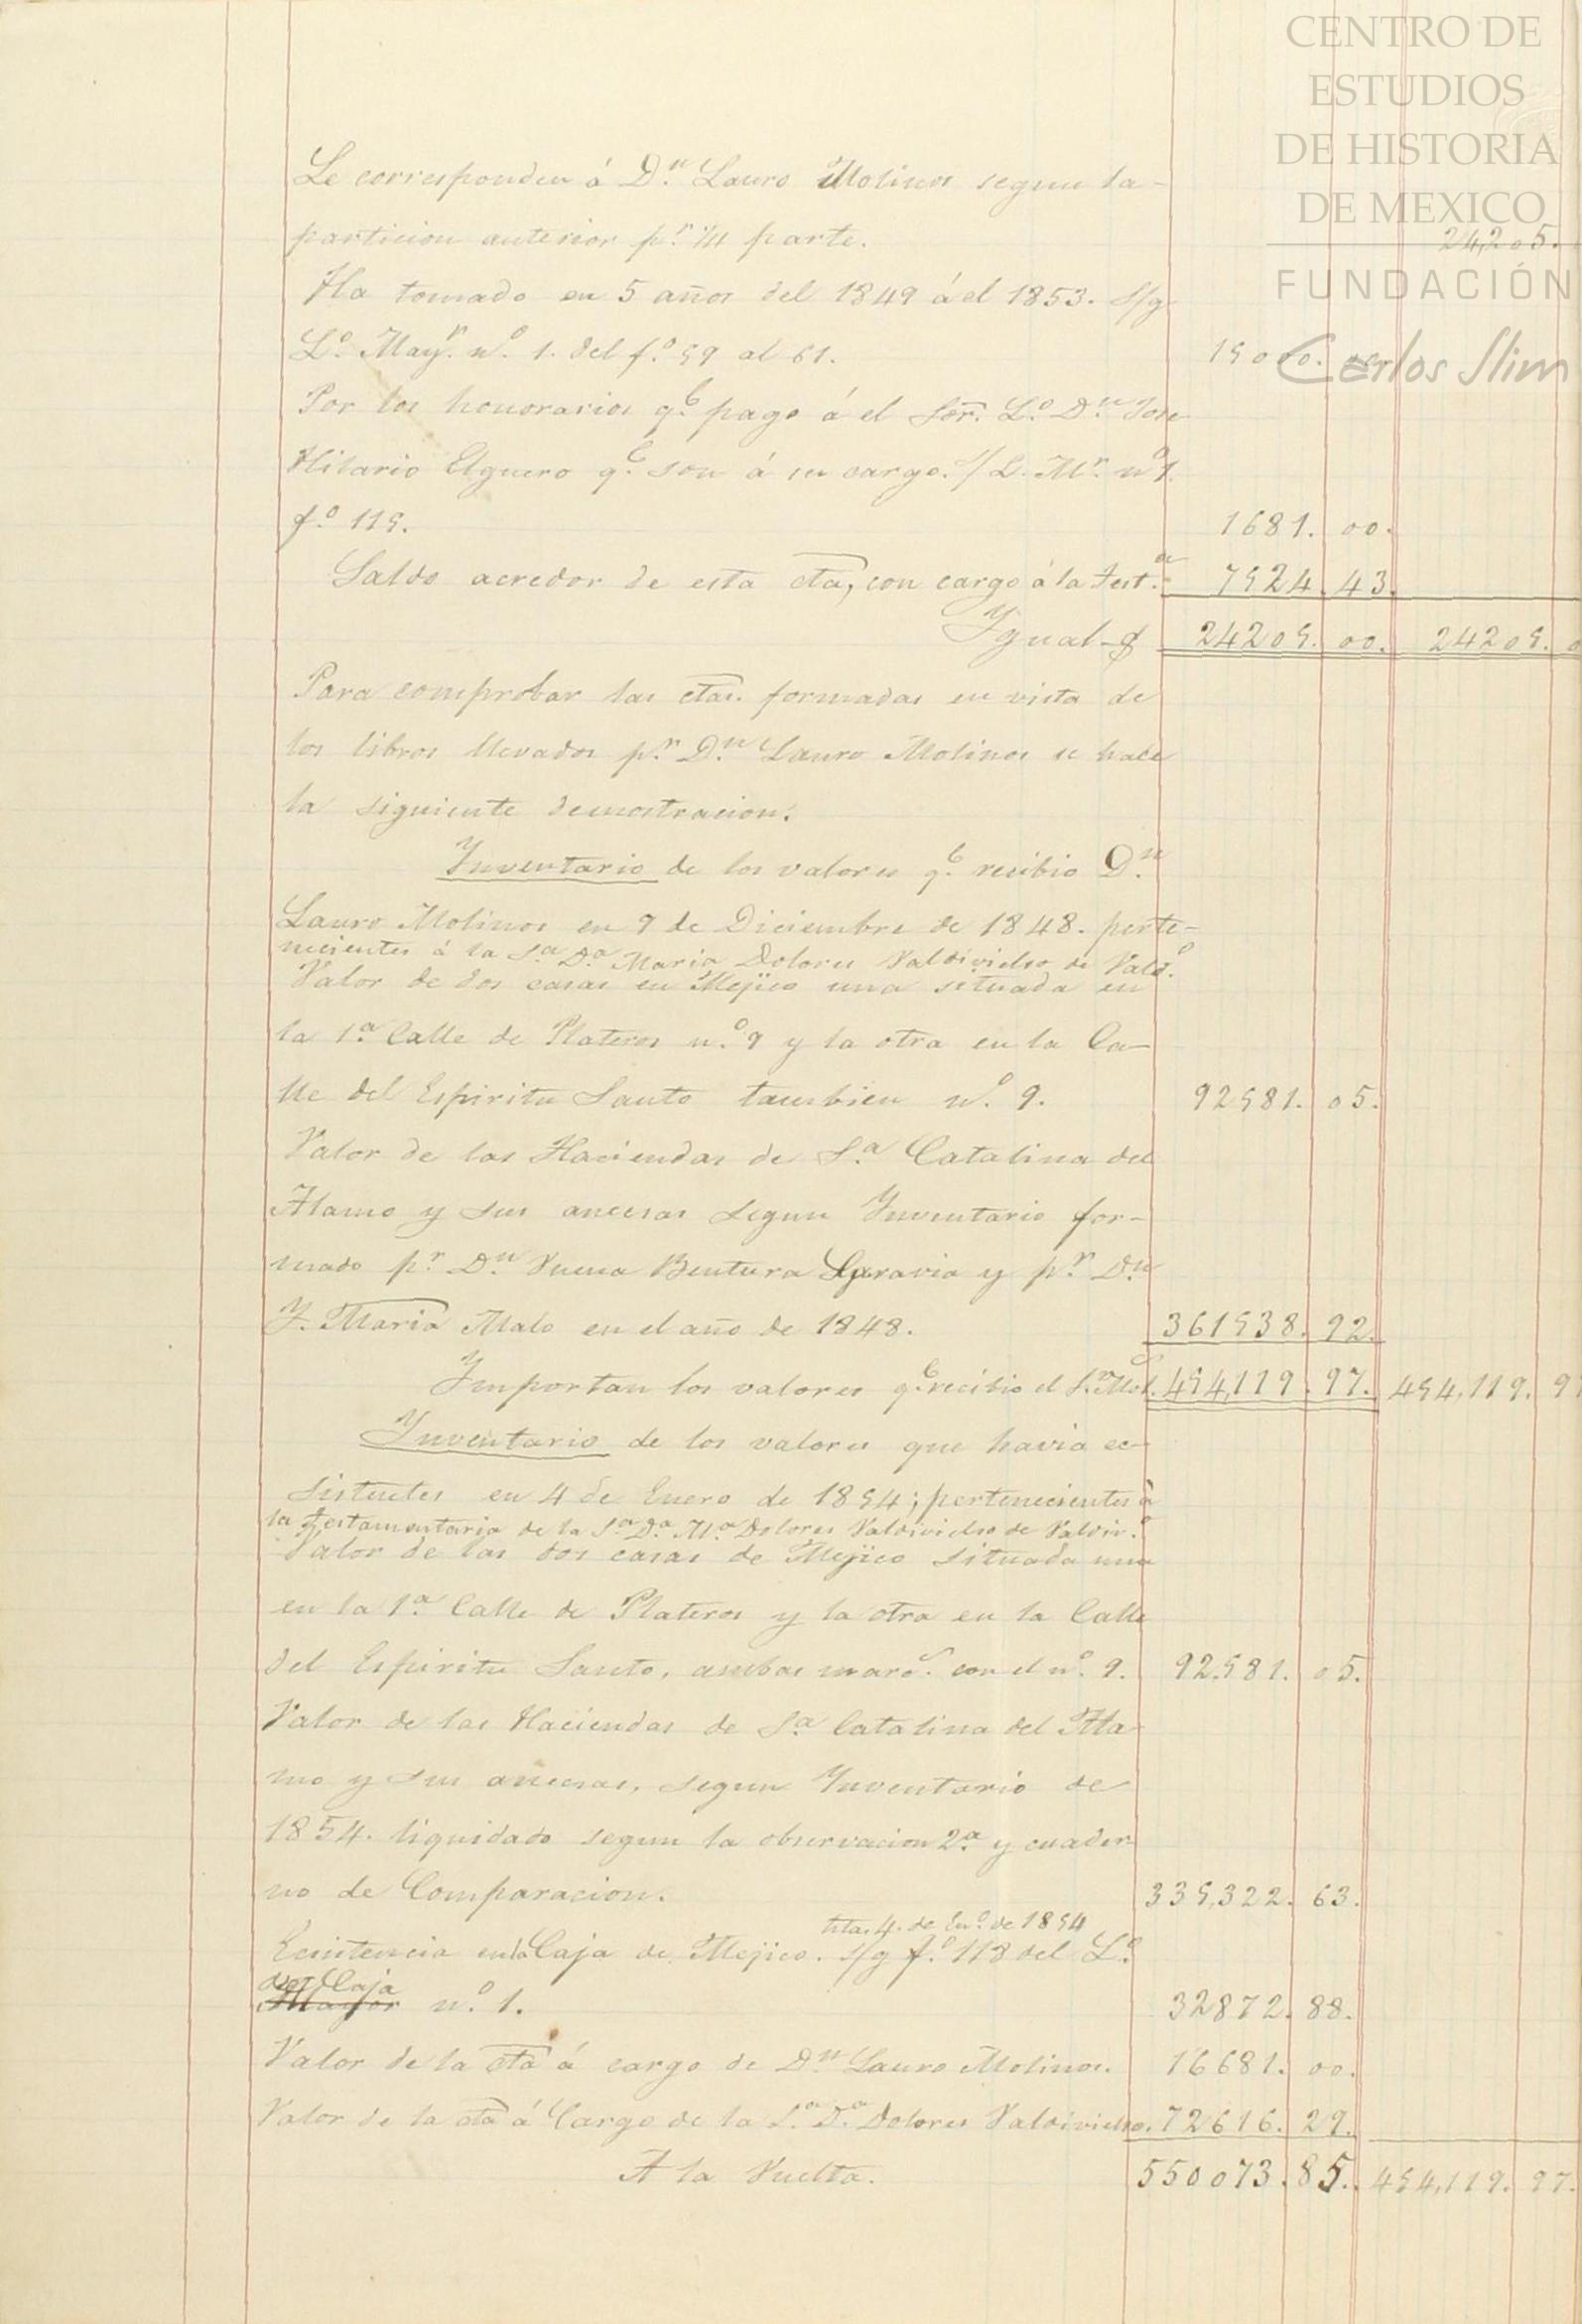 CENTRO DE
ESTUDIOS
DE HISTORIA
DE MEXICO
FUNDACIÓN
Carlos Slim
Le corresponden á Dn. Lauro Molinos segun la
particion anterior pr. parte. 24,205.
Ha tomado en 5 años del 1849 á el 1853. s/g
Lo. Mayr. no. 1. del fo. 59 al 61. 15000.
Por los honorarios qe. pago á el Sor. Lo. Dn. Jose
Hilario Elguero qe. son á su cargo. s/ L. Mr. no 1.
fo. 115. 1681. 00.
Saldo acredor de esta cta, con cargo á la Test.a 7524. 43.
Ygual-$ 24205. 00. 24205. 0
Para comprobar las ctas. formadas en vista de
los libros llevados pr. Dn. Lauro Molinos se hace
la siguiente demostracion.
Inventario de los valores qe. recibio Dn.
Lauro Molinos en 9 de Diciembre de 1848. perte-
necientes á la Sa. Da. Maria Dolores Valdivielso de Vald.o
Valor de dos casas en Mejico una situada en
la 1a. Calle de Plateros no. 9 y la otra en la Ca-
lle del Espiritu Santo tambien no. 9. 92581. 05.
Valor de las Haciendas de Sa. Catalina del
Alamo y sus anecsas segun Ynventario for-
mado pr. Dn. Buena Bentura Saravia y pr. Dn
J. Maria Malo en el año de 1848. 361538. 92.
Ymportan los valores qe. recibio el Sr. Mol. 454,119. 97. 454,119. 97
Ynventario de los valores que havia ec-
sistentes en 4 de Enero de 1854; pertenecientes á
la testamentaria de la Sa. Da. Ma. Dolores Valdivielso de Valdiv.o
Valor de las dos casas de Mejico situada una
en la 1a. Calle de Plateros y la otra en la Calle
del Espiritu Santo, ambas marc. con el no. 9. 92.581. 05.
Valor de las Haciendas de Sa. Catalina del Ala-
mo y sus anecsas, segun Ynventario de
1854. liquidado segun la observacion 2a. y cuader
no de Comparacion. 335,322. 63.
hta. 4. de Eno. de 1854
Ecsistencia en la Caja de Mejico. s/g fo. 118 del Lo.
de Caja
Mayor no. 1. 32872. 88.
Valor de la cta á cargo de Dn Lauro Molinos. 16681. 00.
Valor de la cta á Cargo de la Sa. Da. Dolores Valdivielso. 72616. 29.
A la Vuelta. 550073. 85. 454,119. 97.